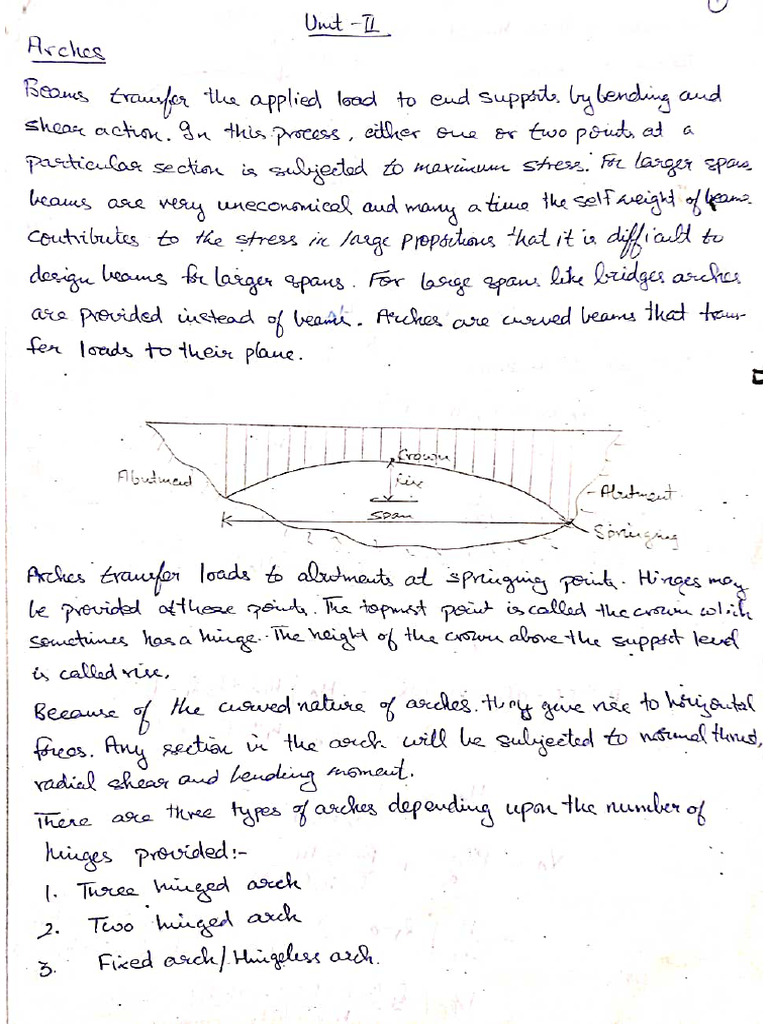 Unit - II
Arches
Beams transfer the applied load to end supports by bending and
shear action. In this process, either one or two points at a
particular section is subjected to maximum stress. For larger spans
beams are very uneconomical and many a time the self weight of beams
contributes to the stress in large propositions that it is difficult to
design beams for larger spans. For large spans like bridges arches
are provided instead of beams. Arches are curved beams that trans-
fer loads to their plane.
Crown
Abutment
rise
Abutment
span
Springing
Arches transfer loads to abutments at springing points. Hinges may
be provided at these points. The topmost point is called the crown which
sometimes has a hinge. The height of the crown above the support level
is called rise.
Because of the curved nature of arches, they give rise to horizontal
forces. Any section in the arch will be subjected to normal thrust,
radial shear and bending moment.
There are three types of arches depending upon the number of
hinges provided:-
1. Three hinged arch
2. Two hinged arch
3. Fixed arch/Hingeless arch.